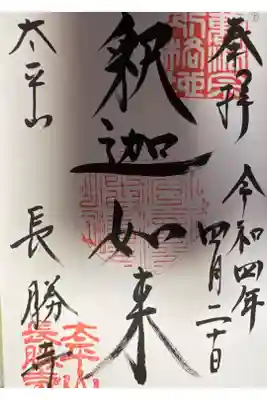 奉拝 令和四年四月二十日
釈迦如来
太平山 長勝寺
太平山
長勝寺